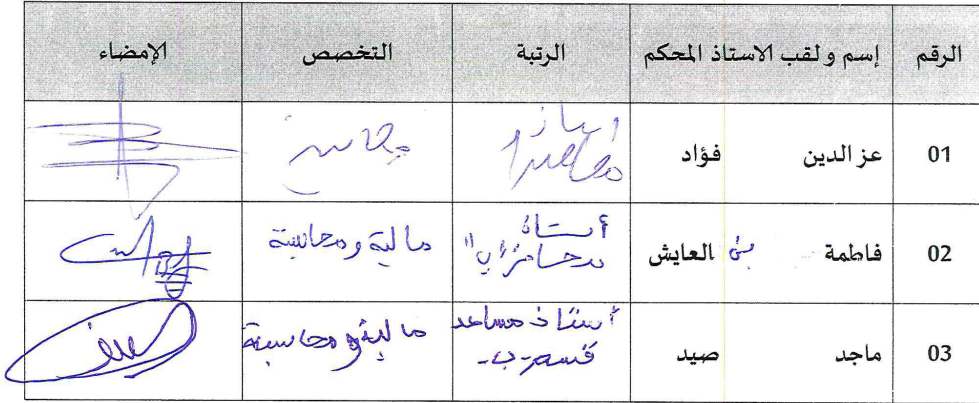 الرقم إسم و لقب الاستاذ المحكم الرتبة التخصص الإمضاء
01 عز الدين فؤاد أستاذ محاضر أ محاسبة
02 فاطمة بن العايش أستاذ محاضر "ب" مالية ومحاسبة
03 ماجد صيد أستاذ مساعد مالية ومحاسبة
قسم -ب-